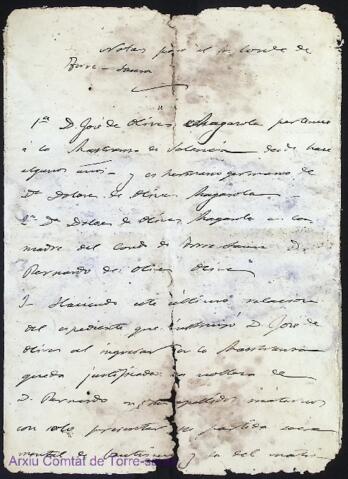 Notas para el Sr. Conde de
Torre-Saura
1ª D. José de Olives Magarola pertenece
á la Maestranza de Valencia desde hace
algunos años - y es hermano germano de
Dª Dolores de Olives Magarola -
2ª Dª Dolores de Olives Magarola es
madre del Conde de Torre-Saura D.
Bernardo de Olives Olives
3ª Haciendo este último relacion
del espediente que D. José de
Olives al ingresar en la Maestranza
queda justificada la nobleza de
D. Bernardo apellidos maternos
con solo presentar su partida sacra
mental de bautismo y la del matri
Arxiu Comtal de Torre-saura